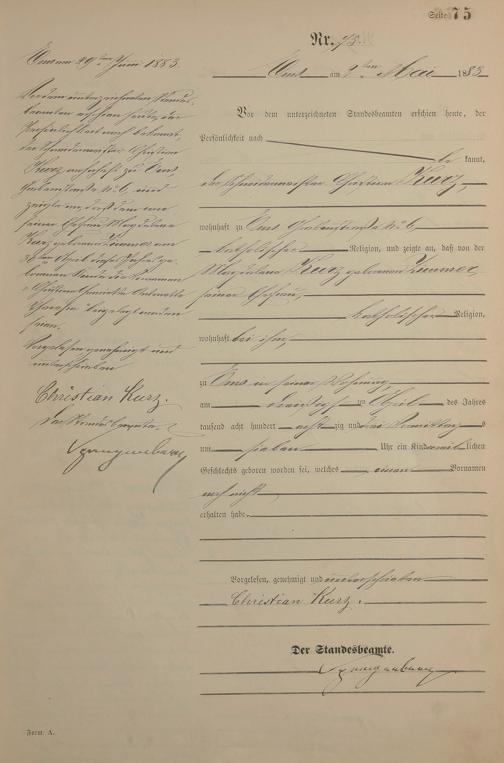 Seite 75
Nr. 75.
Ems am 1ten Mai 1883
Vor dem unterzeichneten Standesbeamten erschien heute, der
Persönlichkeit nach
be kannt,
der Schneidermeister Christian Kurz,
wohnhaft zu Ems
katholischer Religion, und zeigte an, daß von der
Magdalena Kurz geborenen Zimmer,
seiner Ehefrau,
katholischer Religion,
wohnhaft bei ihm,
zu Ems in seiner Wohnung
am des Jahres
tausend acht hundert achtzig und drei Vormittags
um sieben Uhr ein Kind weiblichen
Geschlechts geboren worden sei, welches einen Vornamen
noch nicht
erhalten habe.
Vorgelesen, genehmigt und unterschrieben
Christian Kurz.
Der Standesbeamte.
Ems am 29ten Juni 1883.
Vor dem unterzeichneten Standes-
beamten erschien heute, der
Persönlichkeit nach bekannt,
der Schneidermeister Christian
Kurz wohnhaft zu Ems
und
zeigte an, daß dem von
seiner Ehefrau Magdalena
Kurz geborenen Zimmer am
April dieses Jahres ge-
borenen Kinde die Vornamen
beigelegt worden
seien.
Vorgelesen, genehmigt und
unterschrieben
Christian Kurz.
Der Standesbeamte.
Form. A.